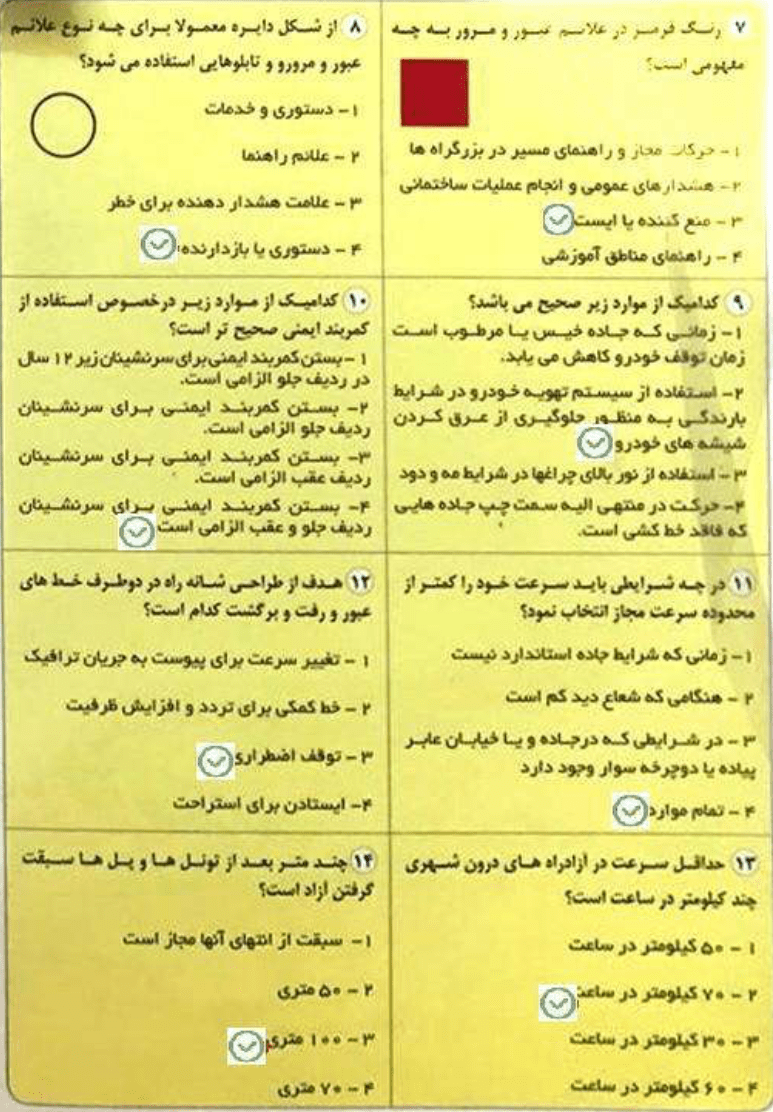 ۷ رنگ قرمز در علائم عبور و مرور به چه
مفهومی است؟
۱- حرکات مجاز و راهنمای مسیر در بزرگراه ها
۲- هشدارهای عمومی و انجام عملیات ساختمانی
۳- منع کننده یا ایست
۴- راهنمای مناطق آموزشی
۸ از شکل دایره معمولا برای چه نوع علائم
عبور و مرورو و تابلوهایی استفاده می شود؟
۱- دستوری و خدمات
۲- علائم راهنما
۳- علامت هشدار دهنده برای خطر
۴- دستوری یا بازدارنده
۹ کدامیک از موارد زیر صحیح می باشد؟
۱- زمانی که جاده خیس یا مرطوب است
زمان توقف خودرو کاهش می یابد.
۲- استفاده از سیستم تهویه خودرو در شرایط
بارندگی به منظور جلوگیری از عرق کردن
شیشه های خودرو
۳- استفاده از نور بالای چراغها در شرایط مه و دود
۴- حرکت در منتهی الیه سمت چپ جاده هایی
که فاقد خط کشی است.
۱۰ کدامیک از موارد زیر درخصوص استفاده از
کمربند ایمنی صحیح تر است؟
۱- بستن کمربند ایمنی برای سرنشینان زیر ۱۲ سال
در ردیف جلو الزامی است.
۲- بستن کمربند ایمنی برای سرنشینان
ردیف جلو الزامی است.
۳- بستن کمربند ایمنی برای سرنشینان
ردیف عقب الزامی است.
۴- بستن کمربند ایمنی برای سرنشینان
ردیف جلو و عقب الزامی است
۱۱ در چه شرایطی باید سرعت خود را کمتر از
محدوده سرعت مجاز انتخاب نمود؟
۱- زمانی که شرایط جاده استاندارد نیست
۲- هنگامی که شعاع دید کم است
۳- در شرایطی که درجاده و یا خیابان عابر
پیاده یا دوچرخه سوار وجود دارد
۴- تمام موارد
۱۲ هدف از طراحی شانه راه در دوطرف خط های
عبور و رفت و برگشت کدام است؟
۱- تغییر سرعت برای پیوست به جریان ترافیک
۲- خط کمکی برای تردد و افزایش ظرفیت
۳- توقف اضطراری
۴- ایستادن برای استراحت
۱۳ حداقل سرعت در آزادراه های درون شهری
چند کیلومتر در ساعت است؟
۱- ۵۰ کیلومتر در ساعت
۲- ۷۰ کیلومتر در ساعت
۳- ۳۰ کیلومتر در ساعت
۴- ۶۰ کیلومتر در ساعت
۱۴ چند متر بعد از تونل ها و پل ها سبقت
گرفتن آزاد است؟
۱- سبقت از انتهای آنها مجاز است
۲- ۵۰ متری
۳- ۱۰۰ متری
۴- ۷۰ متری